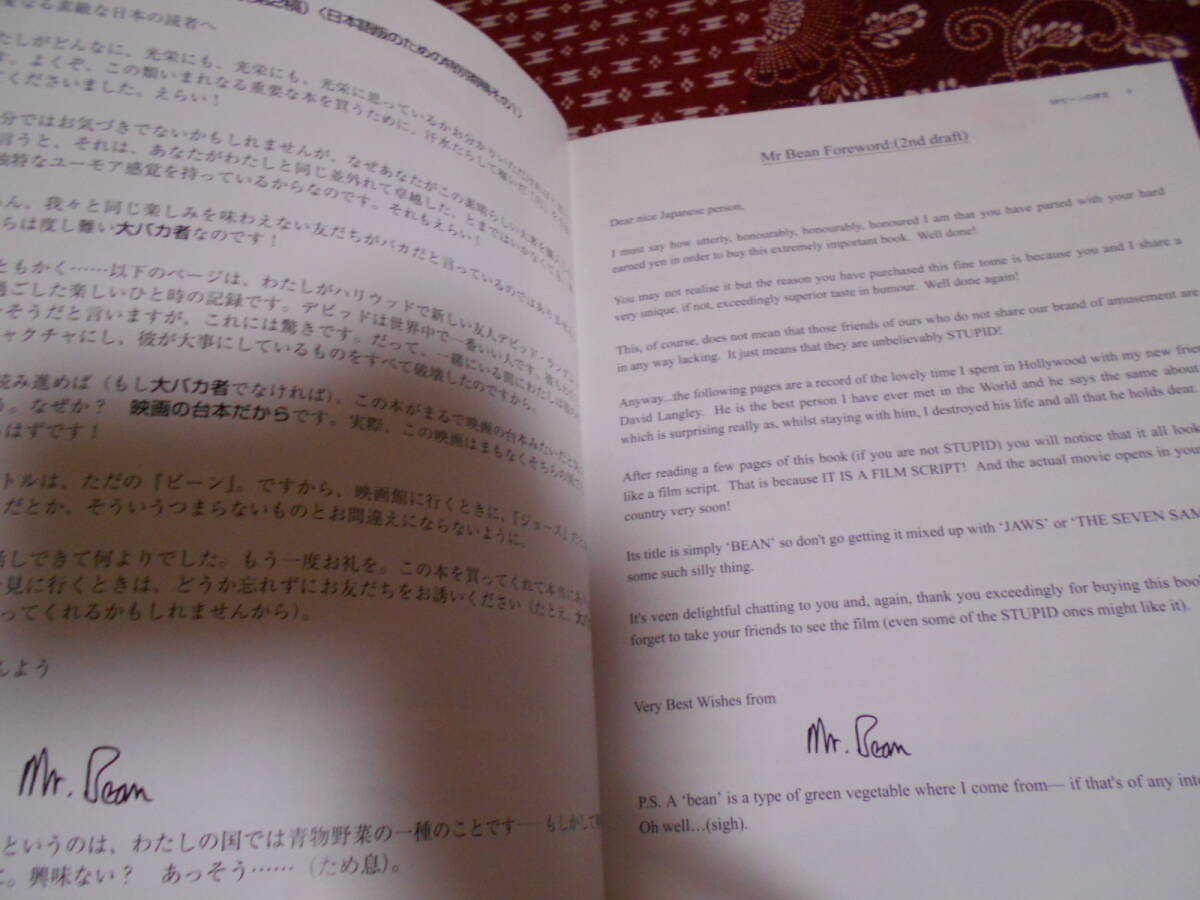 第2稿)〈日本語版のための特別原稿その1〉
愛なる素敵な日本の読者へ
たしがどんなに、光栄にも、光栄にも、光栄に思っているかお分かりいただけ
す。よくぞ、この類いまれなる重要な本を買うために、汗水たらして稼いだ
てくださいました。えらい！
分ではお気づきでないかもしれませんが、なぜあなたがこの素晴らしい大著を購入
言うと、それは、あなたがわたしと同じ並外れて卓越した、とまではいかなくても、
独特なユーモア感覚を持っているからなのです。それもえらい！
ん、我々と同じ楽しみを味わえない友だちがバカだと言っているのではありません
らは度し難い大バカ者なのです！
ともかく……以下のページは、わたしがハリウッドで新しい友人デビッド・ラングレー
過ごした楽しいひと時の記録です。デビッドは世界中で一番いい人です。彼も
そうだと言いますが、これには驚きです。だって、一緒にいる間にわたしは彼の
ャクチャにし、彼が大事にしているものをすべて破壊したのですから。
読み進めば（もし大バカ者でなければ）、この本がまるで映画の台本みたいだと
）。なぜか？　映画の台本だからです。実際、この映画はまもなくそちらの国で
はずです！
トルは、ただの『ビーン』。ですから、映画館に行くときに、『ジョーズ』だと
だとか、そういうつまらないものとお間違えにならないように。
話しできて何よりでした。もう一度お礼を。この本を買ってくれて本当に
見に行くときは、どうか忘れずにお友だちをお誘いください（たとえ、大
ってくれるかもしれませんから）。
んよう
Mr. Bean
というのは、わたしの国では青物野菜の一種のことです──もしかして
に。興味ない？　あっそう……（ため息）。
Mr Bean Foreword:(2nd draft)
Dear nice Japanese person,
I must say how utterly, honourably, honourably, honoured I am that you have parted with your hard
earned yen in order to buy this extremely important book. Well done!
You may not realise it but the reason you have purchased this fine tome is because you and I share a
very unique, if not, exceedingly superior taste in humour. Well done again!
This, of course, does not mean that those friends of ours who do not share our brand of amusement are
in any way lacking. It just means that they are unbelievably STUPID!
Anyway...the following pages are a record of the lovely time I spent in Hollywood with my new frien
David Langley. He is the best person I have ever met in the World and he says the same about
which is surprising really as, whilst staying with him, I destroyed his life and all that he holds dear.
After reading a few pages of this book (if you are not STUPID) you will notice that it all look
like a film script. That is because IT IS A FILM SCRIPT! And the actual movie opens in your
country very soon!
Its title is simply ‘BEAN’ so don't go getting it mixed up with ‘JAWS’ or ‘THE SEVEN SAM
some such silly thing.
It's veen delightful chatting to you and, again, thank you exceedingly for buying this book
forget to take your friends to see the film (even some of the STUPID ones might like it).
Very Best Wishes from
Mr. Bean
P.S. A ‘bean’ is a type of green vegetable where I come from— if that's of any inte
Oh well…(sigh).